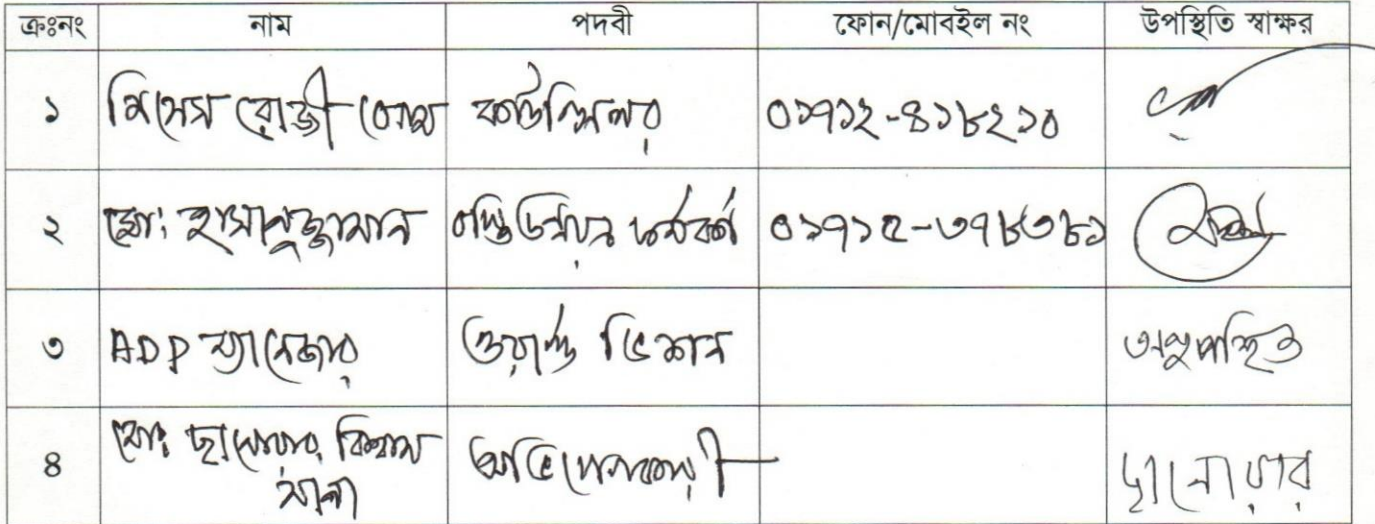 ক্রঃনং নাম পদবী ফোন/মোবইল নং উপস্থিতি স্বাক্ষর
১ মিসেস রোজী কাউন্সিলর ০১৭১২-৪১৮২১০
২ মো: হাসানুজ্জামান বস্তি উন্নয়ন কর্মকর্তা ০১৭১৫-৩৭৮৩৮১
৩ ADP ম্যানেজার ওয়ার্ল্ড ভিশন অনুপস্থিত
৪ মোঃ ছানোয়ার বিশ্বাস ছানোয়ার